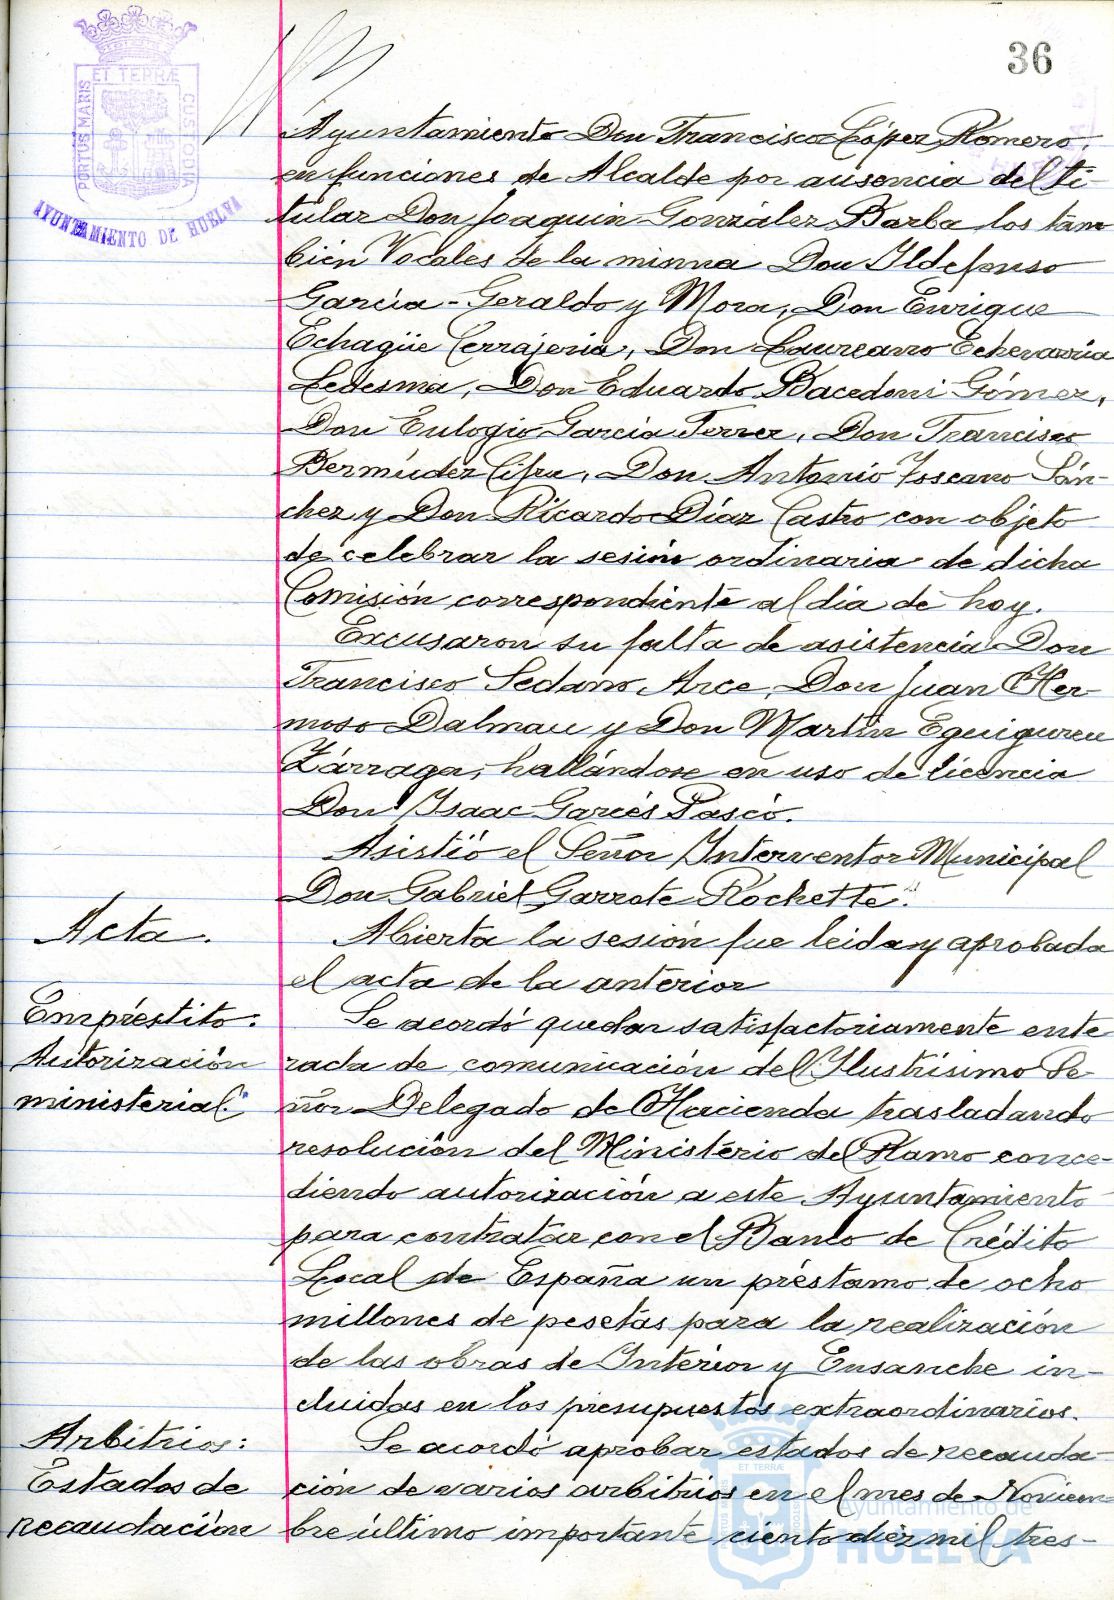 36
PORTUS MARIS ET TERRÆ CUSTODIA
AYUNTAMIENTO DE HUELVA
Ayuntamiento Don Francisco López Romero,
en funciones de Alcalde por ausencia del ti-
tular Don Joaquin González Barba los tam
bién Vocales de la misma Don Ildefonso
García-Geraldo y Mora, Don Enrique
Echagüe Cerrajeria, Don Laureano Echevarria
Ledesma, Don Eduardo Bacedoni Gómez,
Don Eulogio Garcia Ferrer, Don Francisco
Bermúdez Cifru, Don Antonio Toscano Sán-
chez y Don Ricardo Díaz Castro con objeto
de celebrar la sesión ordinaria de dicha
Comisión correspondiente al dia de hoy.
Excusaron su falta de asistencia Don
Francisco Sedano Arce, Don Juan Her-
moso Dalmau y Don Martín Eguiguren
Zárraga, hallándose en uso de licencia
Don Isaac Garcés Pascó.
Asistió el Señor Interventor Municipal
Don Gabriel Garrote Rochette.
Acta.
Abierta la sesión fue leida y aprobada
el acta de la anterior
Empréstito.
Autorización
ministerial.
Se acordó quedar satisfactoriamente ente
rada de comunicación del Ilustrísimo Se-
ñor Delegado de Hacienda trasladando
resolución del Ministerio del Ramo conce-
diendo autorización a este Ayuntamiento
para contratar con el Banco de Crédito
Local de España un préstamo de ocho
millones de pesetas para la realización
de las obras de Interior y Ensanche in-
cluidas en los presupuestos extraordinarios.
Arbitrios:
Estados de
recaudación
Se acordó aprobar estados de recauda-
ción de varios arbitrios en el mes de Noviem-
bre último importante ciento diez mil tres-
Ayuntamiento de
HUELVA